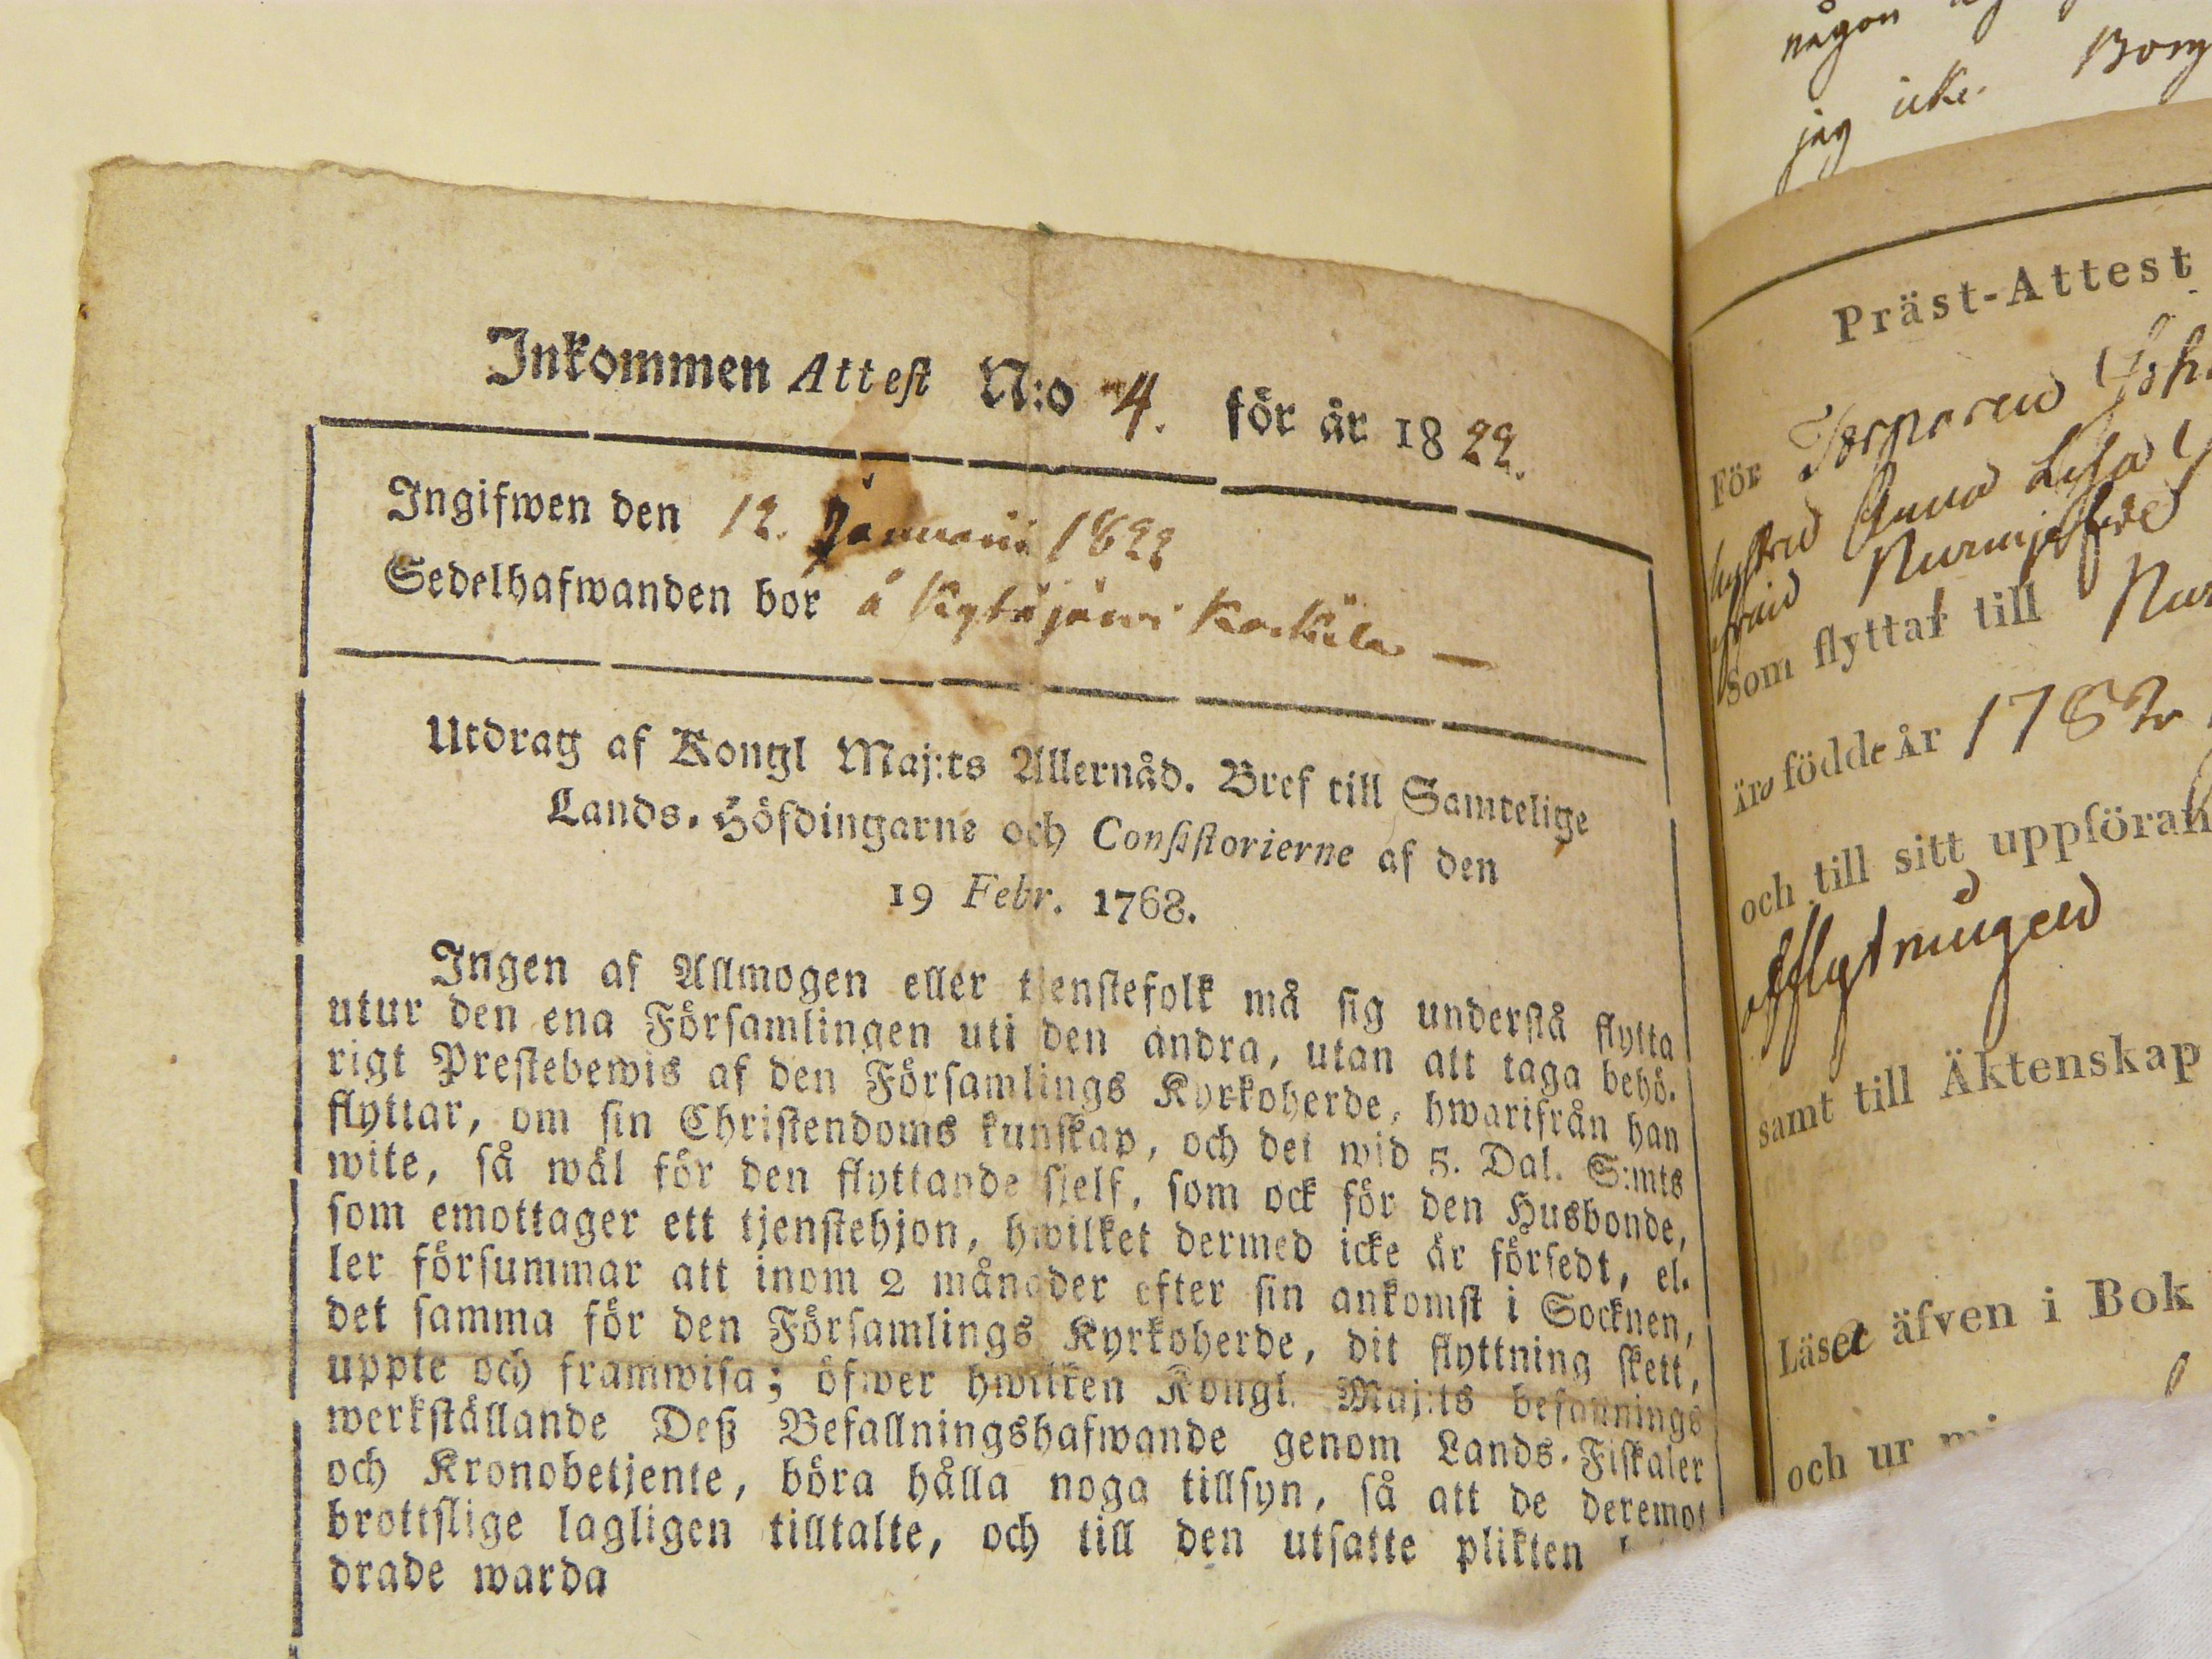 Inkommen Attest N:o 4. för år 1822.
Ingifwen den 12. Januarii 1822
Sedelhafwanden bor å Kytäjärwi
Utdrag af Kongl Maj:ts Allernåd. Bref till Samtelige
Lands-Höfdingarne och Consistorierne af den
19 Febr. 1768.
Ingen af Allmogen eller tjenstefolk må sig understå flytta
utur den ena Församlingen uti den andra, utan att taga behö-
rigt Prestebewis af den Församlings Kyrkoherde, hwarifrån han
flyttar, om sin Christendoms kunskap, och det wid 5. Dal. S:mts
wite, så wäl för den flyttande sjelf, som ock för den Husbonde,
som emottager ett tjenstehjon, hwilket dermed icke är försedt, el-
ler försummar att inom 2 månader efter sin ankomst i Socknen,
det samma för den Församlings Kyrkoherde, dit flyttning skett,
uppte och framwisa; öfwer hwilken Kongl. Maj:ts befallnings
werkställande Deß Befallningshafwande genom Lands-Fiskaler
och Kronobetjente, böra hålla noga tillsyn, så att de deremot
brottslige lagligen tilltalte, och till den utsatte plikten
drade warda
någon
jag icke Borg
Präst-Attest
För Torparen Joh
Anna Lisa
Nurmijärvi
som flyttar till Nur
äro födde År 1782
och till sitt uppföran
afflytningen
samt till Äktenskap
Läser äfven i Bok
och ur